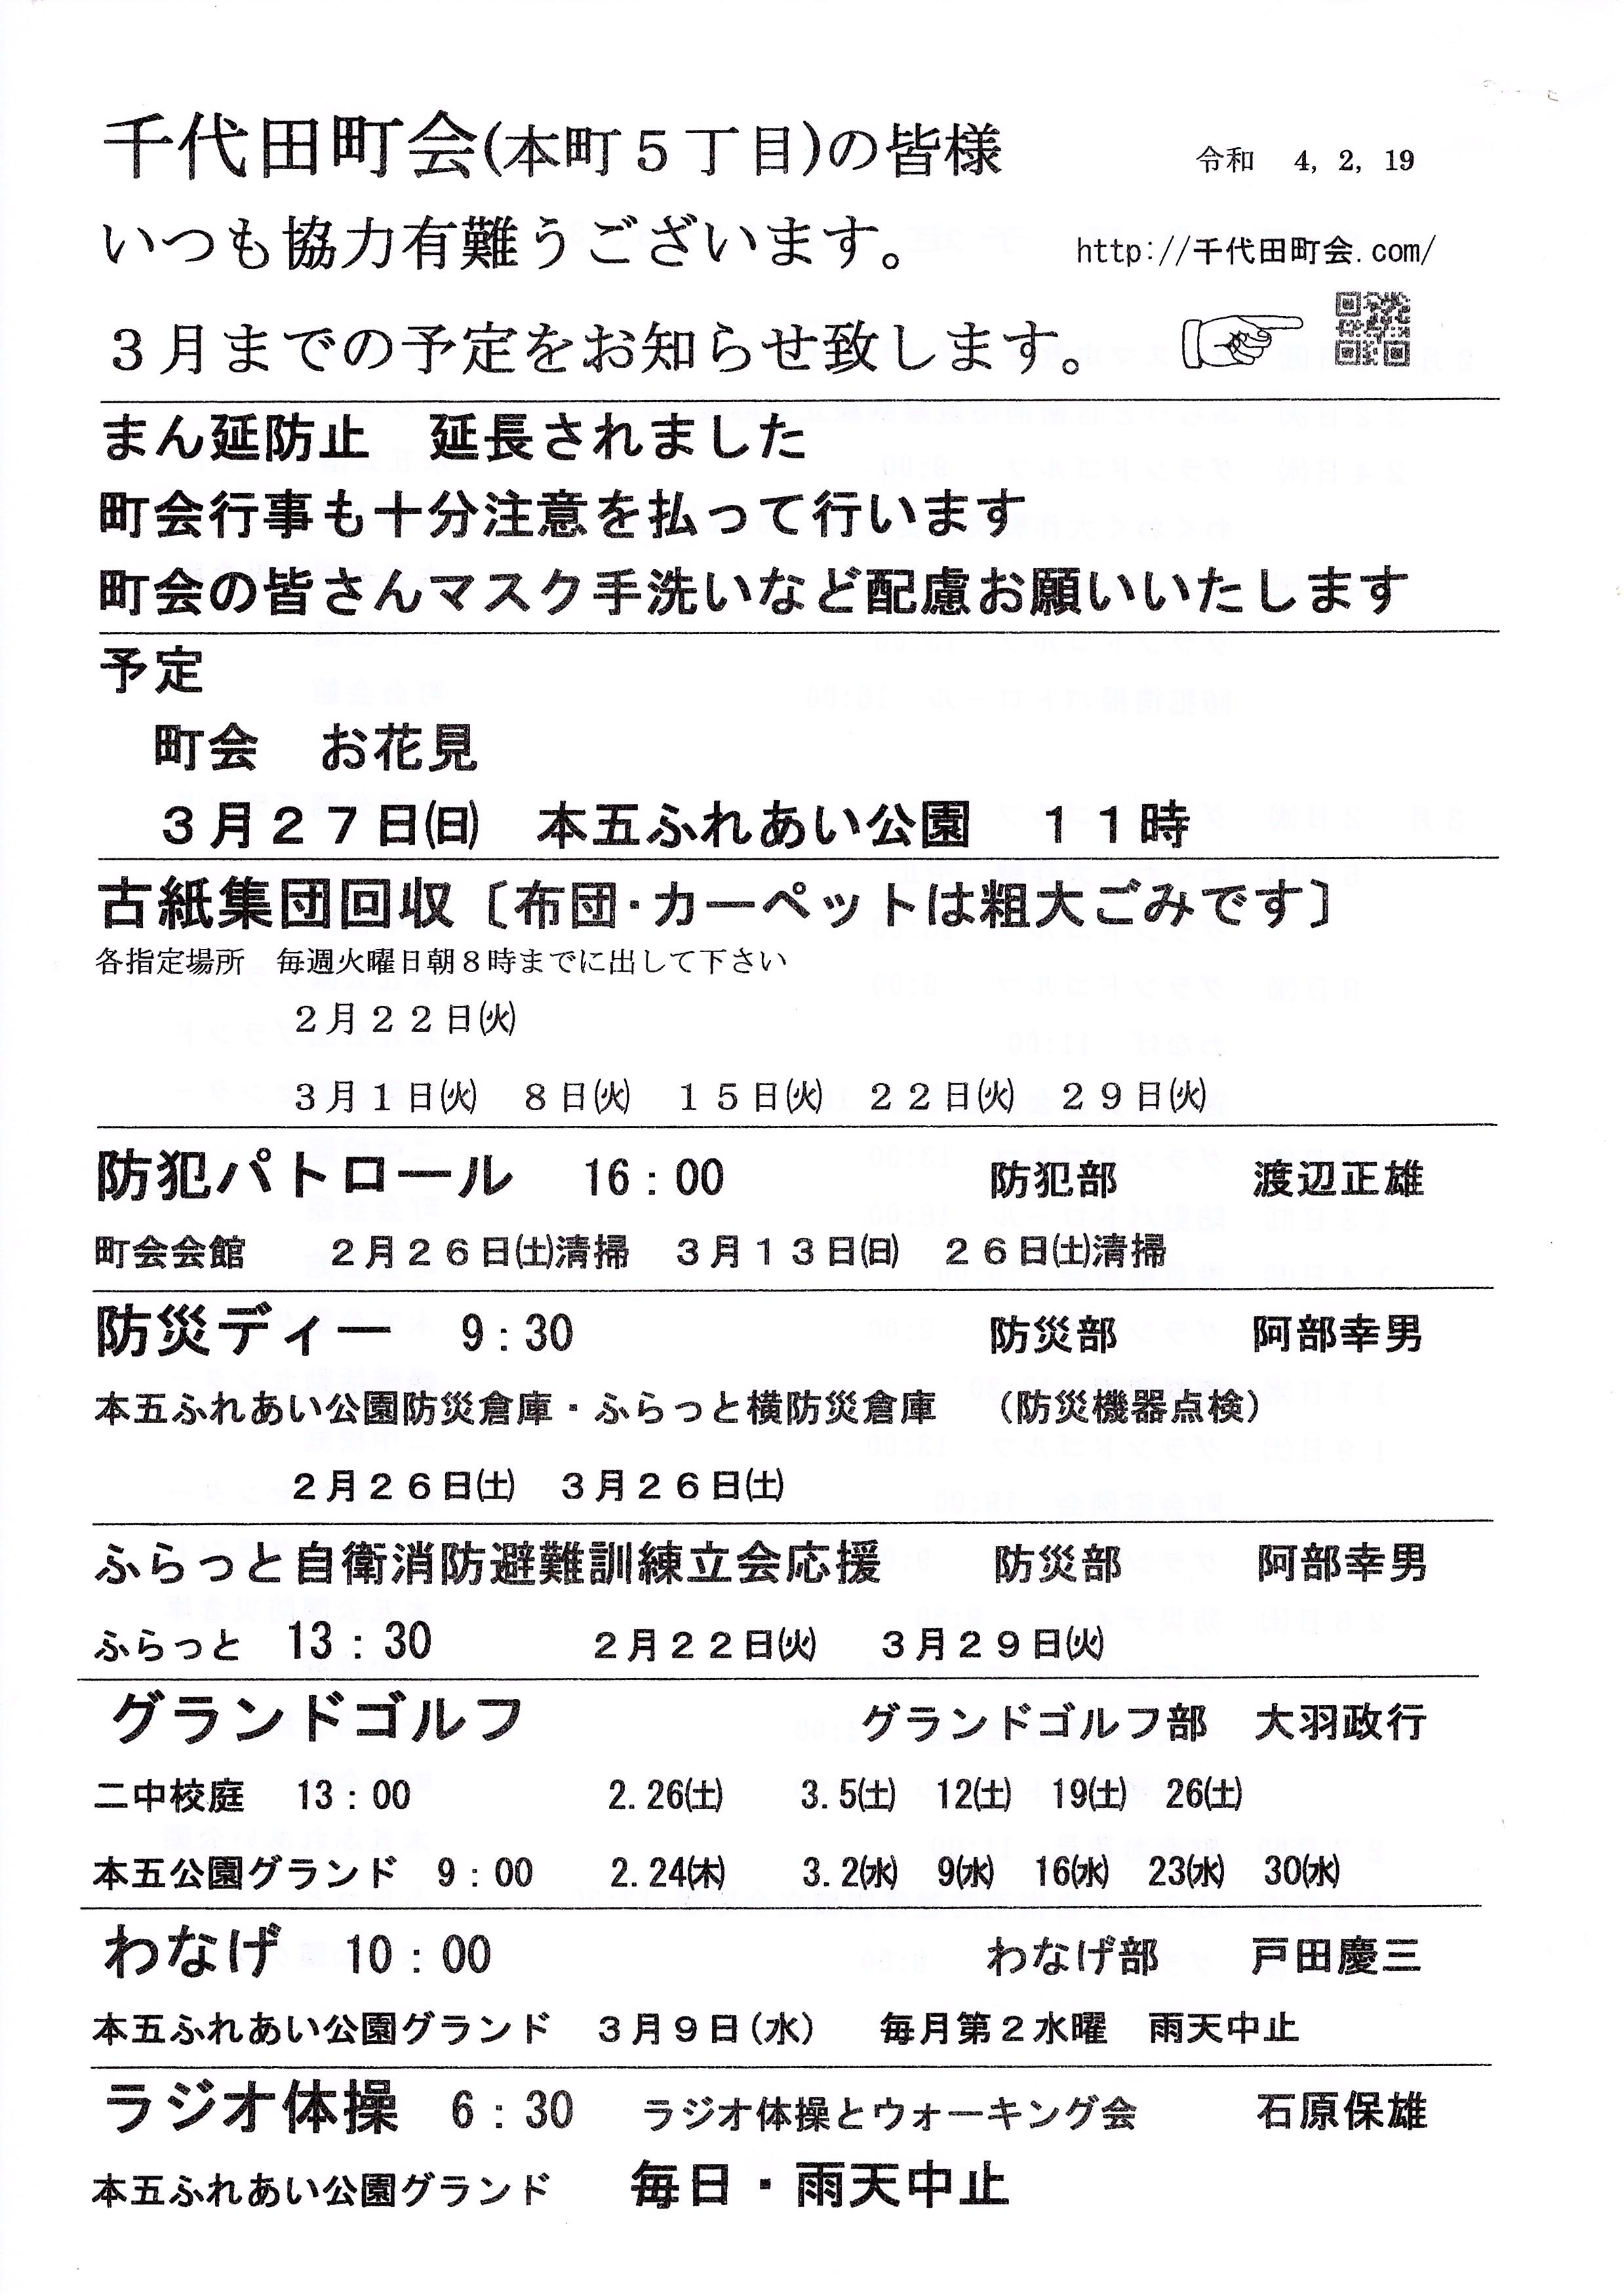 千代田町会(本町５丁目)の皆様　令和　4, 2, 19
いつも協力有難うございます。　http://千代田町会.com/
３月までの予定をお知らせ致します。
まん延防止　延長されました
町会行事も十分注意を払って行います
町会の皆さんマスク手洗いなど配慮お願いいたします
予定
町会　お花見
３月２７日㈰　本五ふれあい公園　１１時
古紙集団回収〔布団・カーペットは粗大ごみです〕
各指定場所　毎週火曜日朝８時までに出して下さい
２月２２日㈫
３月１日㈫　８日㈫　１５日㈫　２２日㈫　２９日㈫
防犯パトロール　16：00　防犯部　渡辺正雄
町会会館　２月２６日㈯清掃　３月１３日㈰　２６日㈯清掃
防災ディー　9：30　防災部　阿部幸男
本五ふれあい公園防災倉庫・ふらっと横防災倉庫　（防災機器点検）
２月２６日㈯　３月２６日㈯
ふらっと自衛消防避難訓練立会応援　防災部　阿部幸男
ふらっと　13：30　２月２２日㈫　３月２９日㈫
グランドゴルフ　グランドゴルフ部　大羽政行
二中校庭　13：00　2.26㈯　3.5㈯　12㈯　19㈯　26㈯
本五公園グランド　9：00　2.24㈭　3.2㈬　9㈬　16㈬　23㈬　30㈬
わなげ　10：00　わなげ部　戸田慶三
本五ふれあい公園グランド　３月９日（水）　毎月第２水曜　雨天中止
ラジオ体操　6：30　ラジオ体操とウォーキング会　石原保雄
本五ふれあい公園グランド　毎日・雨天中止